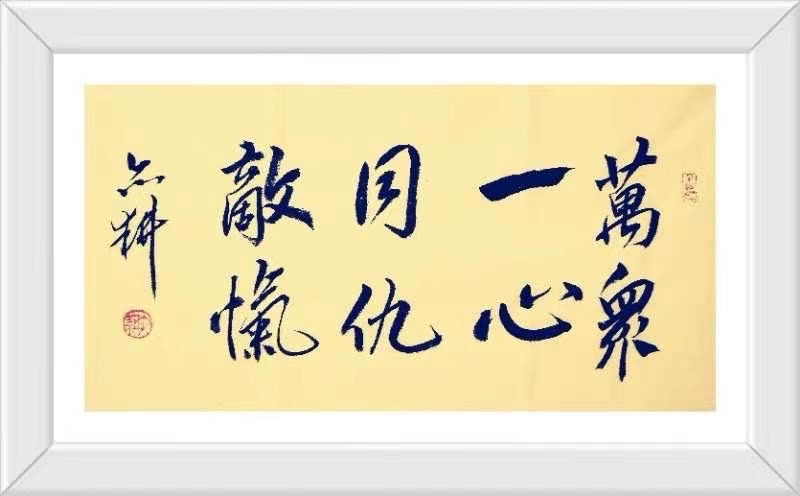 萬眾
一心
同仇
敵愾
耕